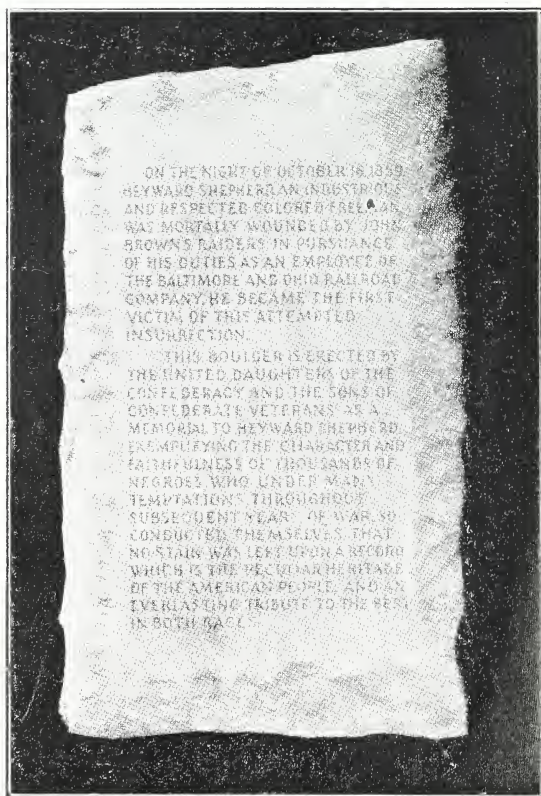 ON THE NIGHT OF OCTOBER 16, 1859,
HEYWARD SHEPHERD, AN INDUSTRIOUS
AND RESPECTED COLORED FREEMAN,
WAS MORTALLY WOUNDED BY JOHN
BROWN'S RAIDERS IN PURSUANCE
OF HIS DUTIES AS AN EMPLOYEE OF
THE BALTIMORE AND OHIO RAILROAD
COMPANY. HE BECAME THE FIRST
VICTIM OF THIS ATTEMPTED
INSURRECTION.
THIS BOULDER IS ERECTED BY
THE UNITED DAUGHTERS OF THE
CONFEDERACY AND THE SONS OF
CONFEDERATE VETERANS AS A
MEMORIAL TO HEYWARD SHEPHERD,
EXEMPLIFYING THE CHARACTER AND
FAITHFULNESS OF THOUSANDS OF
NEGROES WHO, UNDER MANY
TEMPTATIONS THROUGHOUT
SUBSEQUENT YEARS OF WAR, SO
CONDUCTED THEMSELVES THAT
NO STAIN WAS LEFT UPON A RECORD
WHICH IS THE PECULIAR HERITAGE
OF THE AMERICAN PEOPLE, AND AN
EVERLASTING TRIBUTE TO THE BEST
IN BOTH RACES